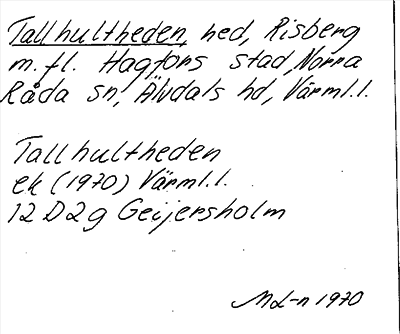 Tallhultheden, hed, Risberg
m.fl. Hagfors stad, Norra
Råda sn, Älvdals hd, Värml.l.
Tallhultheden
ek (1970) Värml.l.
12 D2g Geijersholm
ML-n 1970